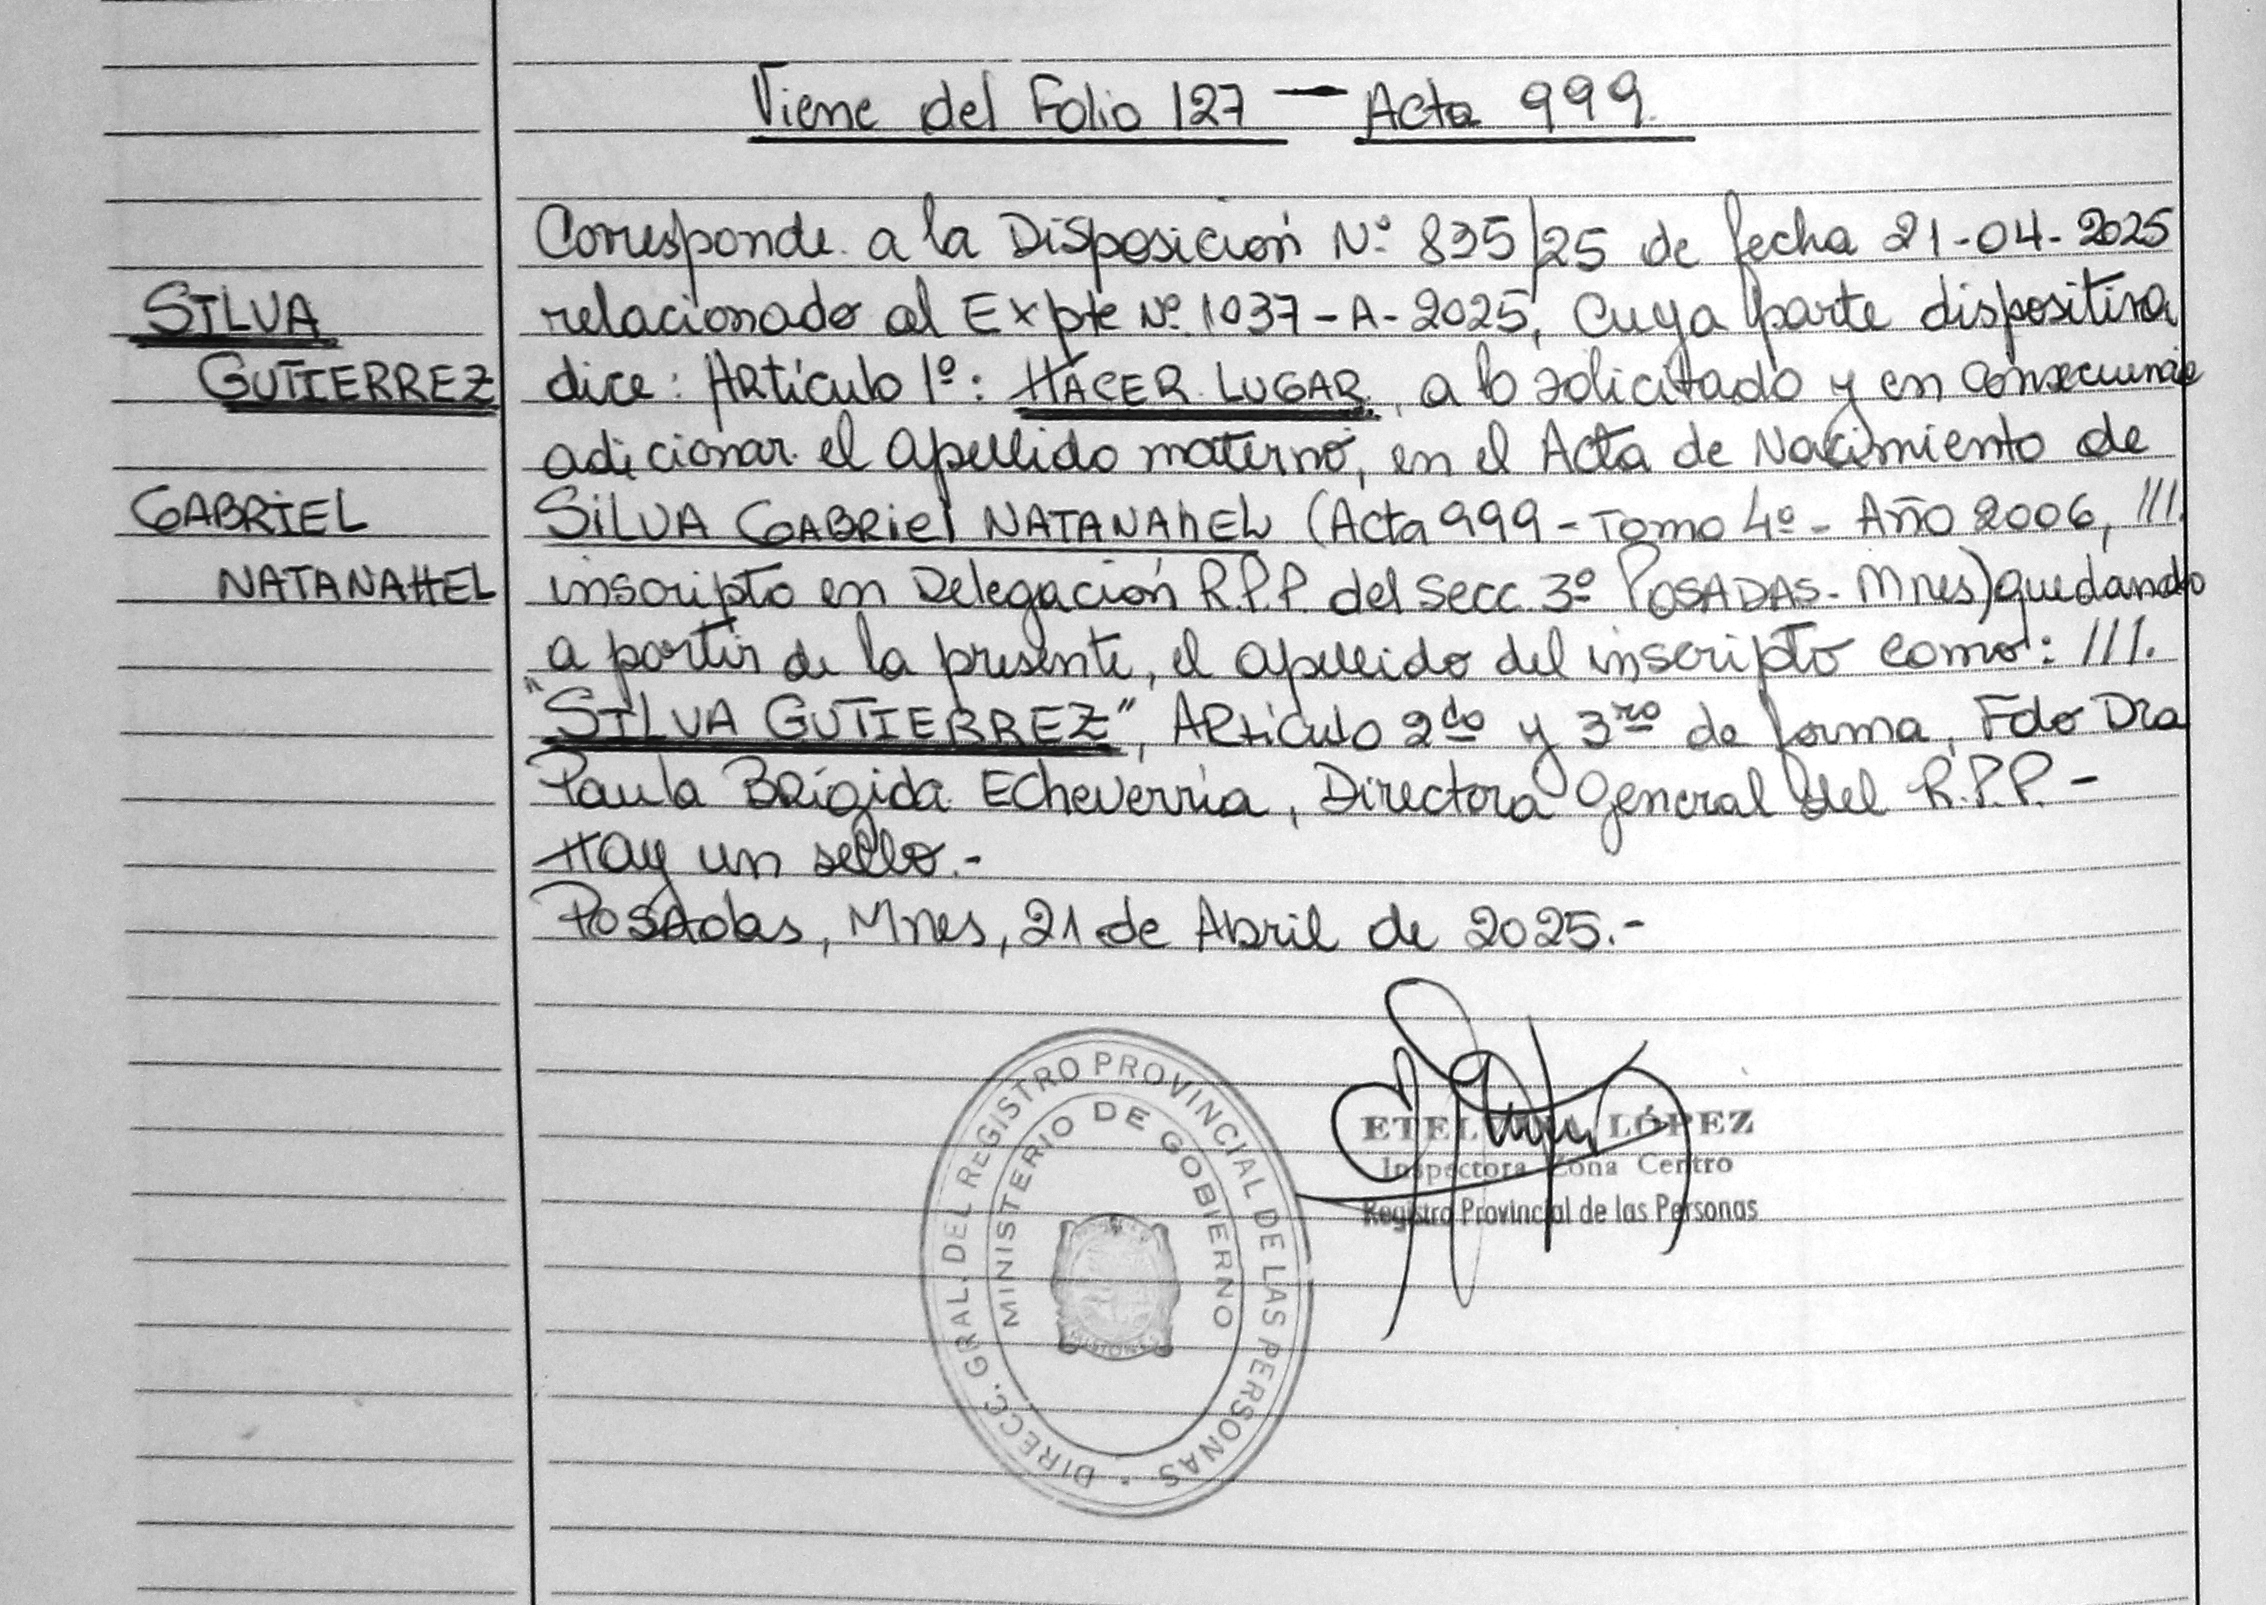 Viene del Folio 127 — Acta 999.
SILVA
GUTIERREZ
GABRIEL
NATANAHEL
Corresponde a la Disposición Nº 835/25 de fecha 21-04-2025
relacionado al Expte Nº 1037-A-2025, cuya parte dispositiva
dice: Artículo 1º: HACER LUGAR, a lo solicitado y en consecuencia
adicionar el apellido materno, en el Acta de Nacimiento de
SILVA GABRIEL NATANAHEL (Acta 999 - Tomo 4º - Año 2006, ///.
inscripto en Delegación R.P.P. del Secc. 3º POSADAS - Mnes) quedando
a partir de la presente, el apellido del inscripto como: ///.
"SILVA GUTIERREZ", Artículo 2do y 3ro de forma, Fdo Dra
Paula Brígida Echeverria, Directora General del R.P.P. -
Hay un sello.-
Posadas, Mnes, 21 de Abril de 2025.-
DIRECC. GRAL. DEL REGISTRO PROVINCIAL DE LAS PERSONAS
MINISTERIO DE GOBIERNO
LÓPEZ
Inspectora Zona Centro
Registro Provincial de las Personas